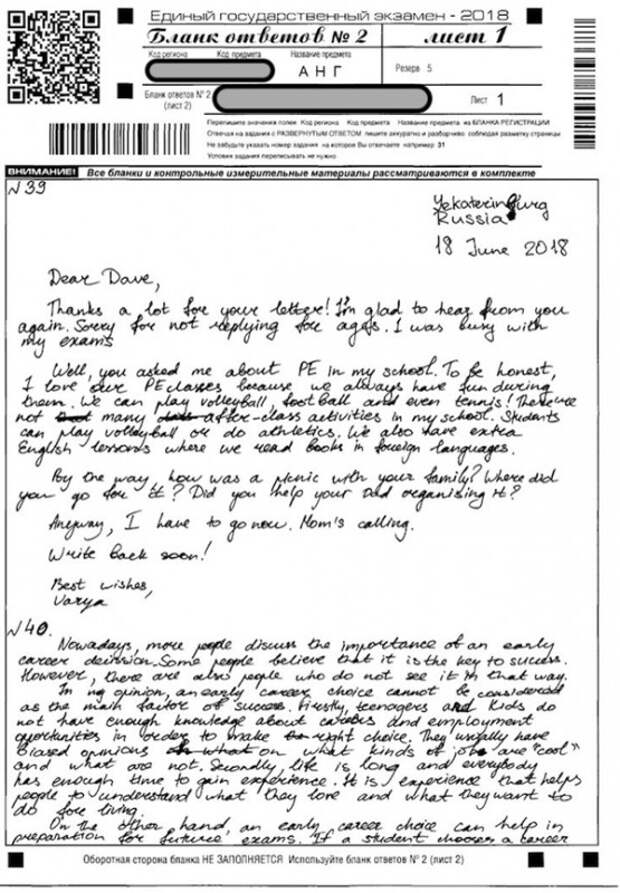 Единый государственный экзамен - 2018
Бланк ответов № 2
лист 1
Код региона Код предмета Название предмета
АНГ
Резерв 5
Бланк ответов № 2 (лист 2)
Лист 1
Перепишите значения полей Код региона Код предмета Название предмета из БЛАНКА РЕГИСТРАЦИИ
Отвечая на задания с РАЗВЕРНУТЫМ ОТВЕТОМ пишите аккуратно и разборчиво соблюдая разметку страницы
Не забудьте указать номер задания на которое Вы отвечаете например 31
Условия задания переписывать не нужно
ВНИМАНИЕ! Все бланки и контрольные измерительные материалы рассматриваются в комплекте
N39
Yekaterinburg
Russia
18 June 2018
Dear Dave,
Thanks a lot for your letter! I'm glad to hear from you
again. Sorry for not replying for ages. I was busy with
my exams
Well, you asked me about PE in my school. To be honest,
I love our PE classes because we always have fun during
them. We can play volleyball, football and even tennis! There are
not many after-class activities in my school. Students
can play volleyball or do athletics. We also have extra
English lessons where we read books in foreign languages.
By the way how was a picnic with your family? Where did
you go for it? Did you help your Dad organising it?
Anyway, I have to go now. Mom's calling.
Write back soon!
Best wishes,
Varya
N40.
Nowadays, more people discuss the importance of an early
career decision. Some people believe that it is the key to success.
However, there are also people who do not see it in that way.
In my opinion, an early career choice cannot be considered
as the main factor of success. Firstly, teenagers and kids do
not have enough knowledge about careers and employment
oportunities in order to make right choice. They usually have
biased opinions on what kinds of jobs are "cool"
and what are not. Secondly, life is long and everybody
has enough time to gain experience. It is experience that helps
people to understand what they love and what they want to
do for living.
On the other hand, an early career choice can help in
preparation for future exams. If a student chooses a career
Оборотная сторона бланка НЕ ЗАПОЛНЯЕТСЯ Используйте бланк ответов № 2 (лист 2)